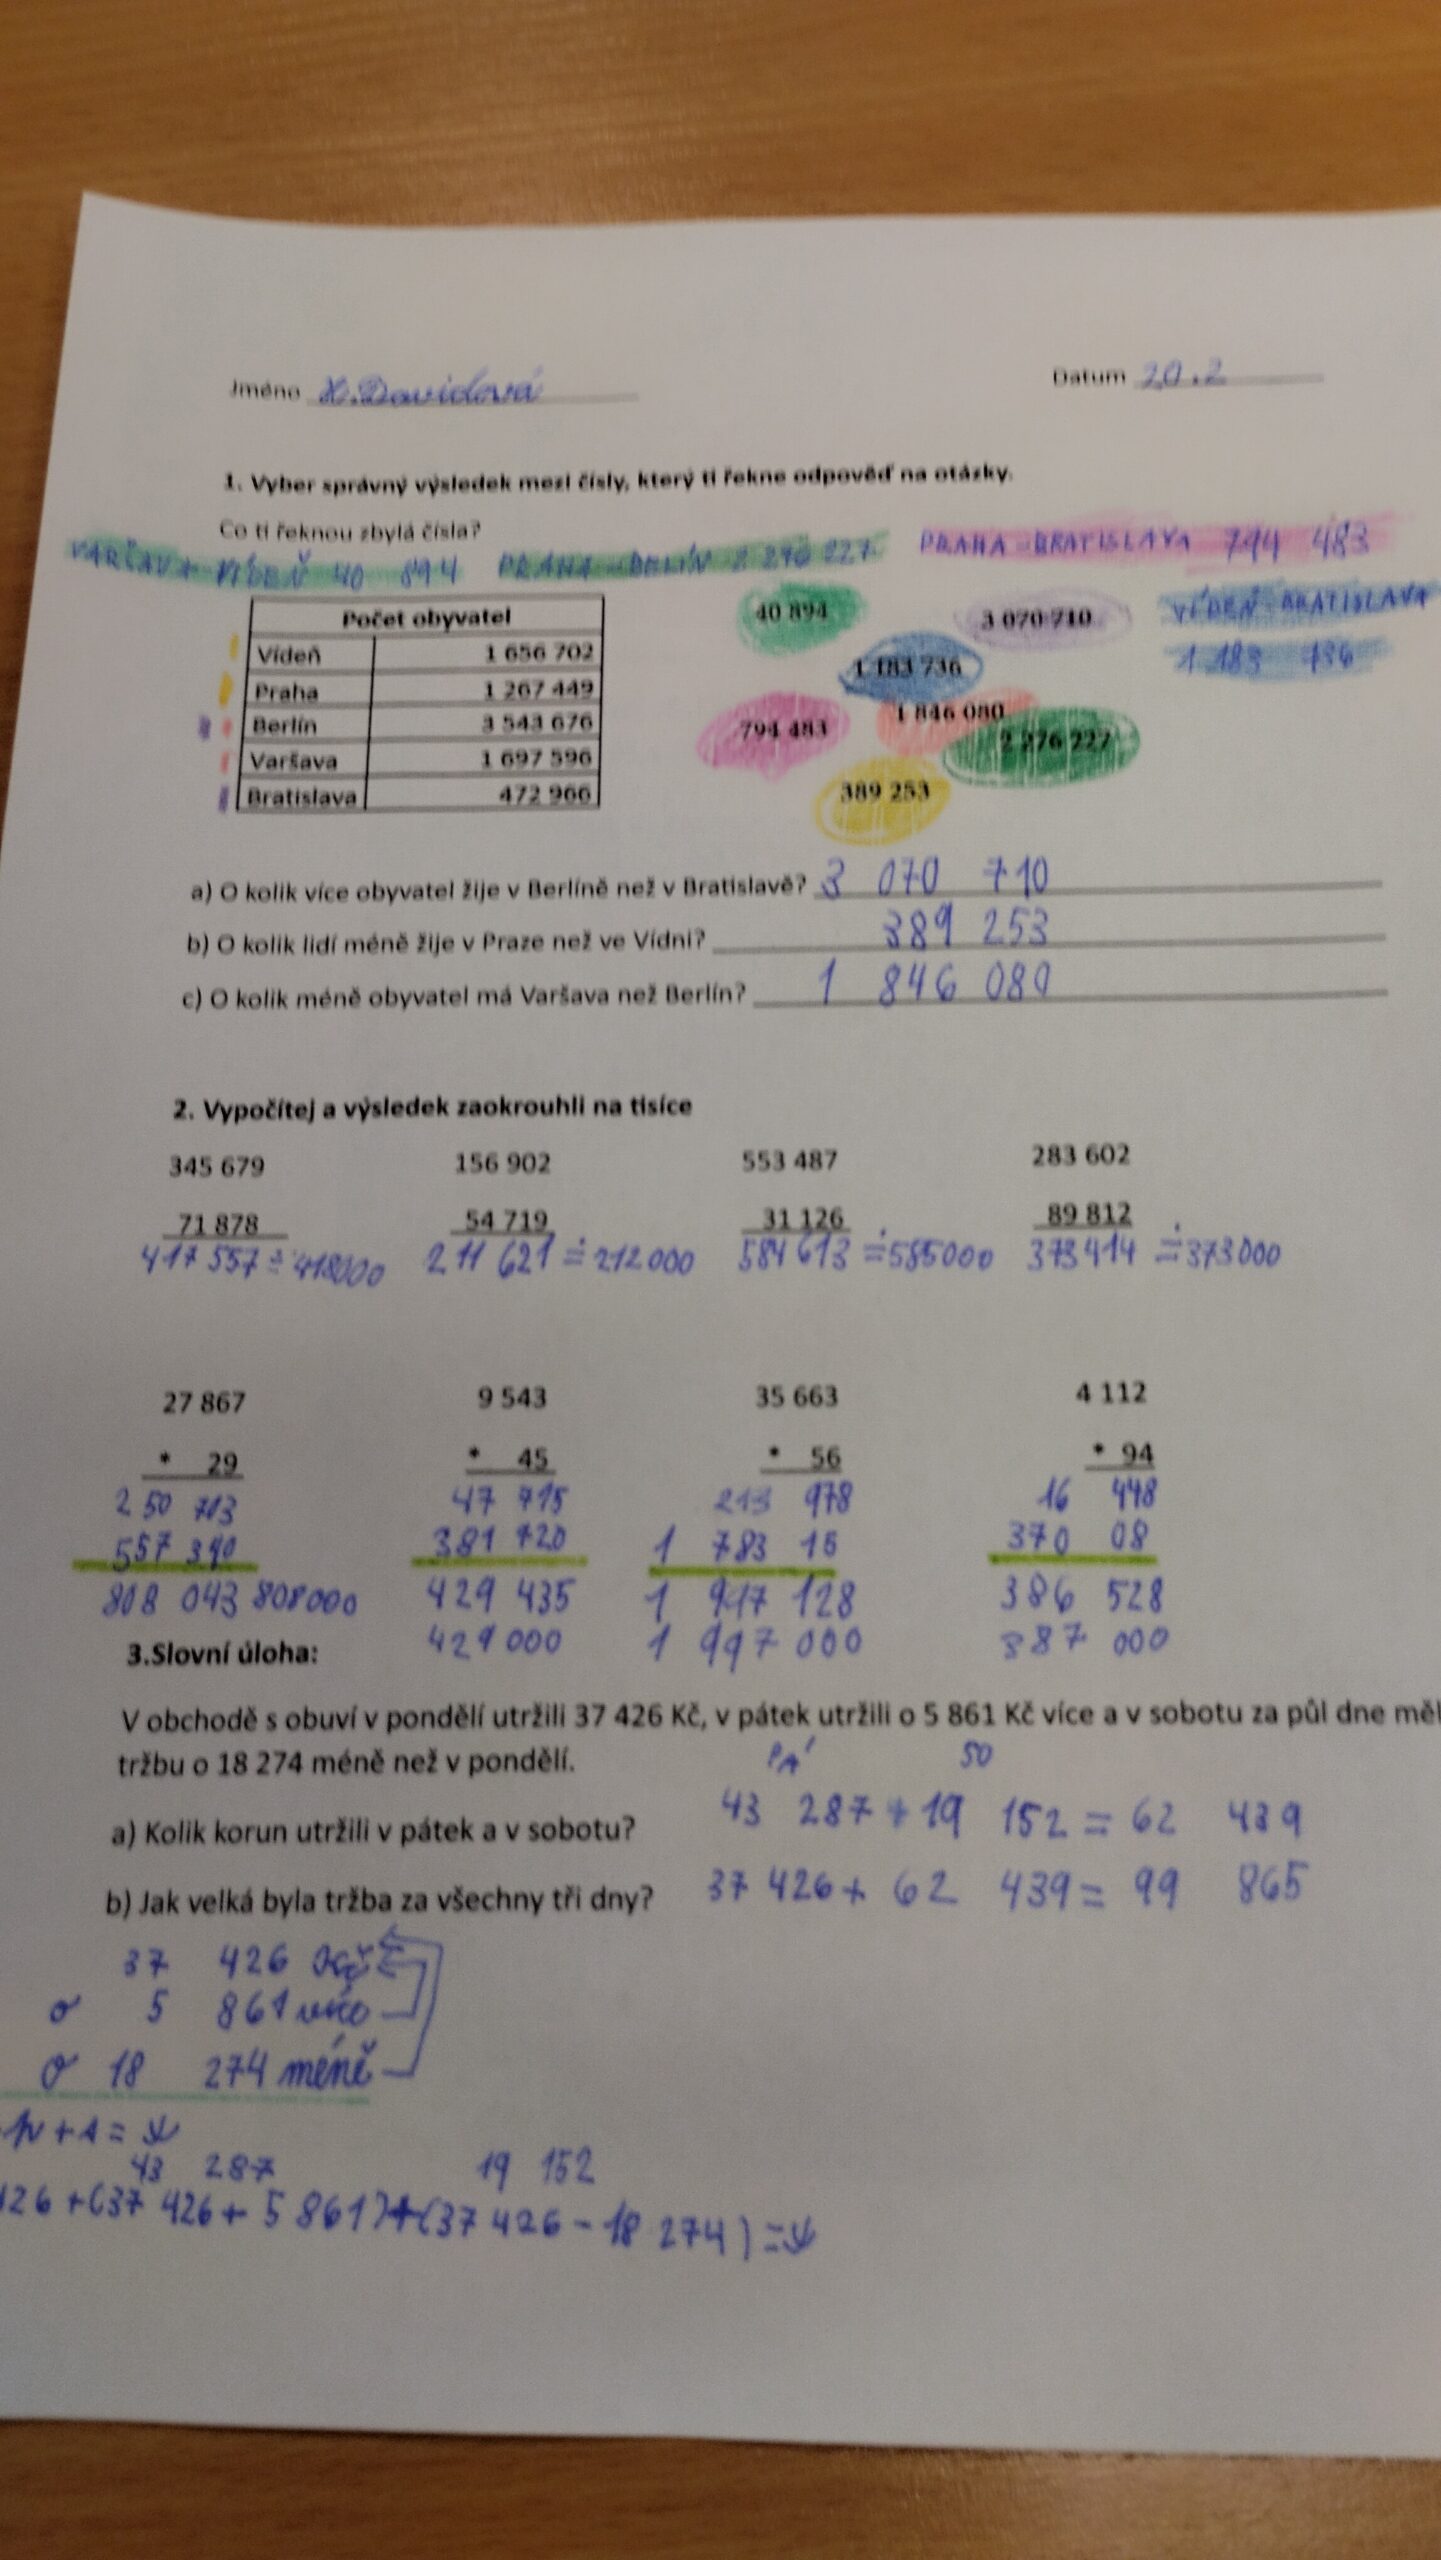 Jméno H. Davidová Datum 20.2
1. Vyber správný výsledek mezi čísly, který ti řekne odpověď na otázky.
Co ti řeknou zbylá čísla?
PRAHA - BRATISLAVA 794 483
VARŠAVA VÍDEŇ 40 894 PRAHA - BELÍN 2 276 227
VÍDEŇ - BRATISLAVA
1 183 736
Počet obyvatel
Vídeň 1 656 702
Praha 1 267 449
Berlín 3 543 676
Varšava 1 697 596
Bratislava 472 966
40 894 3 070 710
1 183 736
794 483 1 846 080
2 276 227
389 253
a) O kolik více obyvatel žije v Berlíně než v Bratislavě? 3 070 710
b) O kolik lidí méně žije v Praze než ve Vídni? 389 253
c) O kolik méně obyvatel má Varšava než Berlín? 1 846 080
2. Vypočítej a výsledek zaokrouhli na tisíce
345 679 156 902 553 487 283 602
71 878 54 719 31 126 89 812
417 557 ≐ 418000 211 621 ≐ 212 000 584 613 ≐ 585000 373 414 ≐ 373 000
27 867 9 543 35 663 4 112
* 29 * 45 * 56 * 94
2 50 803 47 715 213 978 16 448
557 340 381 720 1 783 15 370 08
808 043 808000 429 435 1 997 128 386 528
429 000 1 997 000 387 000
3.Slovní úloha:
V obchodě s obuví v pondělí utržili 37 426 Kč, v pátek utržili o 5 861 Kč více a v sobotu za půl dne měl
tržbu o 18 274 méně než v pondělí.
PÁ SO
a) Kolik korun utržili v pátek a v sobotu? 43 287 + 19 152 = 62 439
b) Jak velká byla tržba za všechny tři dny? 37 426 + 62 439 = 99 865
37 426 Kč
o 5 861 více
o 18 274 méně
43 287 19 152
426 + (37 426 + 5 861) + (37 426 - 18 274) =